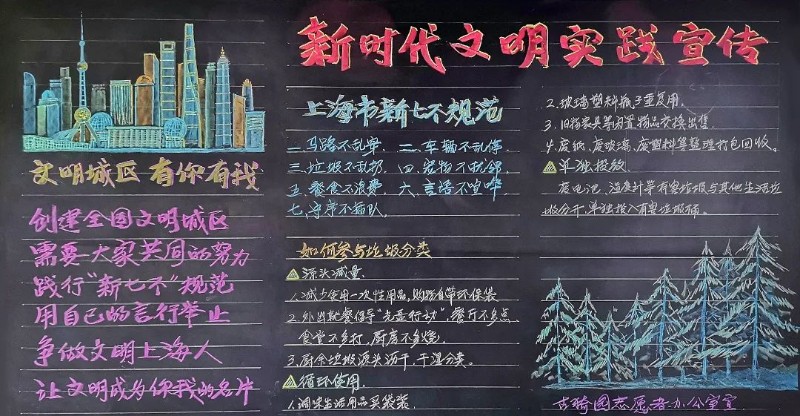 新时代文明实践宣传
文明城区 有你有我
创建全国文明城区
需要大家共同的努力
践行“新七不”规范
用自己的言行举止
争做文明上海人
让文明成为你我的名片
上海市新七不规范
一、马路不乱穿 二、车辆不乱停
三、垃圾不乱扔 四、宠物不扰邻
五、餐食不浪费 六、言语不喧哗
七、守序不插队
如何参与垃圾分类
源头减量
1.减少使用一次性用品,购物自带环保袋
2.外出就餐倡导“光盘行动”餐厅不多点
食堂不多打,厨房不多烧,
3.厨余垃圾源头沥干,干湿分类。
循环使用
1.调味生活用品买袋装
2.玻璃塑料瓶子重复用
3.旧物家具等闲置物品交换出售
4.废纸、废玻璃、废塑料等整理打包回收。
单独投放
废电池、温度计等有害垃圾与其他生活垃
圾分开,单独投入有害垃圾桶。
志愿者办公室宣